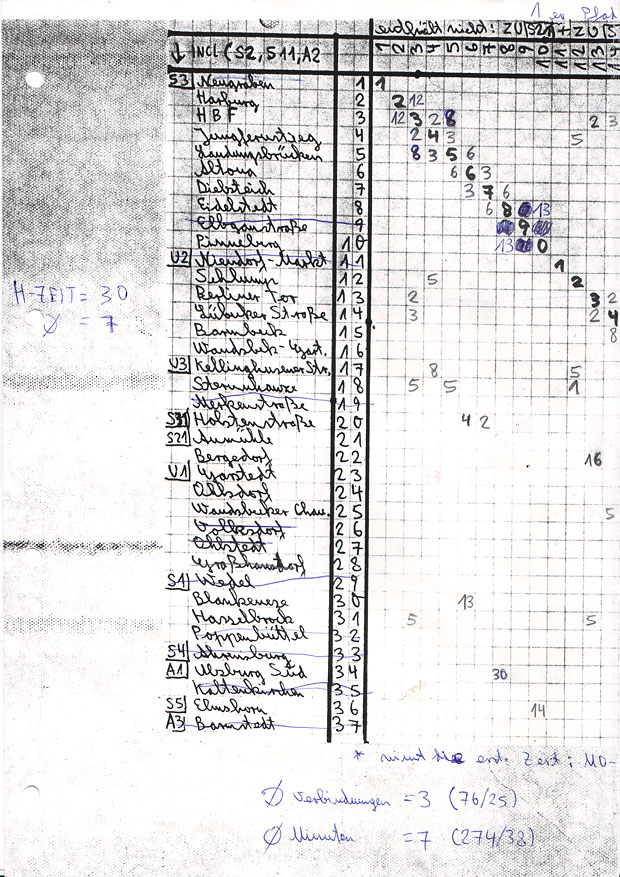 1 er Pfad
enthält nicht: ZU(S21 + ZU(S
↓ INCL (S2, S11, A2 1 2 3 4 5 6 7 8 9 10 11 12 13 14
S3 Neugraben 1 1
Harburg 2 2 12
HBF 3 12 3 2 8 2 3
Jungfernstieg 4 2 4 3 5
Landungsbrücken 5 8 3 5 6
Altona 6 6 6 3
Diebsteich 7 3 7 6
Eidelstedt 8 6 8 13
Elbgaustraße 9 9
Pinneberg 10 13 0
U2 Niendorf-Markt 11 1
Schlump 12 5 2
Berliner Tor 13 2 3 2
Lübecker Straße 14 3 2 4
Barmbeck 15 8
Wandsbek-Gart. 16
U3 Kellinghusener Str. 17 8 5
Sternschanze 18 5 5 1
Merkenstraße 19
S31 Holstenstraße 20 4 2
S21 Aumühle 21
Bergedorf 22 16
U1 Garstedt 23
Ohlsdorf 24
Wandsbeker Chau. 25 5
Volksdorf 26
Ohlstedt 27
Großhansdorf 28
S1 Wedel 29
Blankenese 30 13
Hasselbrook 31 5 5
Poppenbüttel 32
S4 Ahrensburg 33
A1 Ulzburg Süd 34 30
Kaltenkirchen 35
S5 Elmshorn 36 14
A3 Barmstedt 37
H-ZEIT = 30
Ø = 7
* nimmt erst. Zeit: MO-
Ø Verbindungen = 3 (76/25)
Ø Minuten = 7 (274/38)